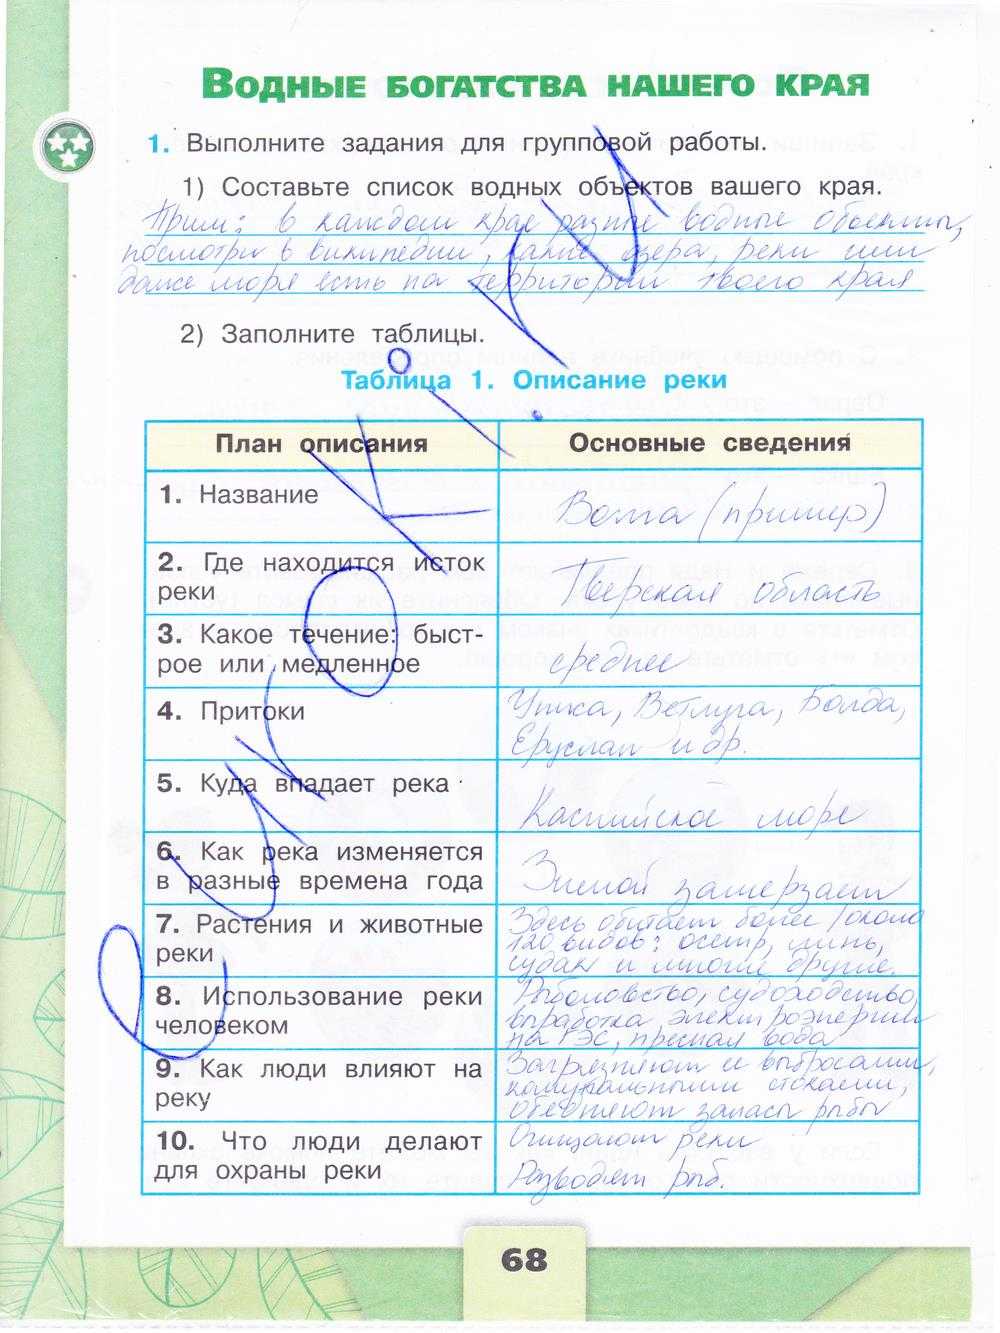 Водные богатства нашего края
1. Выполните задания для групповой работы.
1) Составьте список водных объектов вашего края.
Прим: в каждом крае разные водные объекты,
посмотри в википедии, какие озера, реки или
даже моря есть на территории твоего края
2) Заполните таблицы.
Таблица 1. Описание реки
План описания Основные сведения
1. Название Волга (пример)
2. Где находится исток
реки Тверская область
3. Какое течение: быст-
рое или медленное среднее
4. Притоки Унжа, Ветлуга, Болда,
Еруслан и др.
5. Куда впадает река Каспийское море
6. Как река изменяется
в разные времена года Зимой замерзает
7. Растения и животные
реки
Здесь обитает более /около
120 видов: осетр, линь,
судак и многие другие.
8. Использование реки
человеком
Рыболовство, судоходство,
выработка электроэнергии
на ГЭС, пресная вода
9. Как люди влияют на
реку
Загрязняют ее выбросами,
коммунальными стоками,
обедняют запасы рыбы
10. Что люди делают
для охраны реки
Очищают реки
Разводят рыб.
68